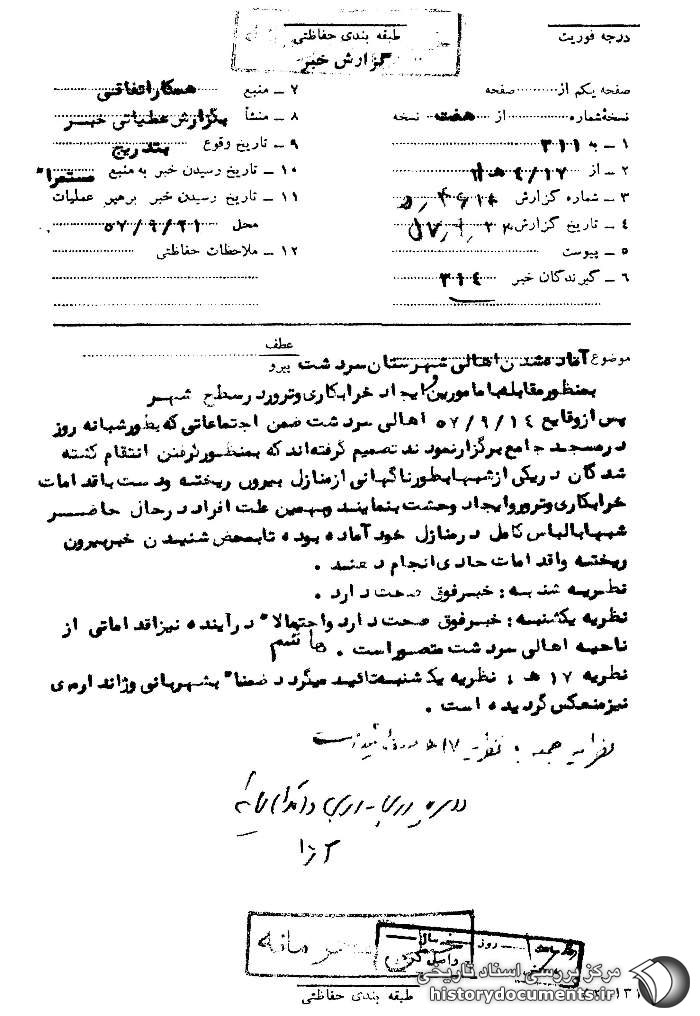 درجه فوریت
طبقه بندی حفاظتی
گزارش خبر
صفحه یکم از صفحه
نسخهٔ شماره از هفت نسخه
۱ ـ به ۳۱۱
۲ ـ از ۱۷ / ۴ ه‍
۳ ـ شماره گزارش
۴ ـ تاریخ گزارش
۵ ـ پیوست
۶ ـ گیرندگان خبر ۳۱۴
۷ ـ منبع همکار اتفاقی
۸ ـ منشأ بگزارش عملیاتی خبر
۹ ـ تاریخ وقوع بتدریج
۱۰ ـ تاریخ رسیدن خبر به منبع مستمرا"
۱۱ ـ تاریخ رسیدن خبر برهبر عملیات
محل ۵۷/۹/۲۱
۱۲ ـ ملاحظات حفاظتی
عطف
موضوع آماده شدن اهالی شهرستان سردشت پیرو
بمنظور مقابله با مامورین و ایجاد خرابکاری و ترور در سطح شهر
پس از وقایع ۵۷/۹/۱۴ اهالی سردشت ضمن اجتماعاتی که بطور شبانه روز
در مسجد جامع برگزار نموده اند تصمیم گرفته اند که بمنظور گرفتن انتقام کشته
شدگان در یکی از شبها بطور ناگهانی از منازل بیرون ریخته و دست باقدامات
خرابکاری و ترور و ایجاد وحشت بنمایند و بهمین علت افراد در حال حاضر
شبها با لباس کامل در منازل خود آماده بوده تا بمحض شنیدن خبر بیرون
ریخته و اقدامات حادی انجام دهند .
نظریه شنبه : خبر فوق صحت دارد .
نظریه یکشنبه : خبر فوق صحت دارد و احتمالا" در آینده نیز اقداماتی از
ناحیه اهالی سردشت متصور است .
نظریه ۱۷ ه‍ : نظریه یکشنبه تائید میگردد ضمنا" بشهربانی و ژاندارمری
نیز منعکس گردیده است .
نظریه جمعه : نظریه ۱۷ ه‍ مورد تأیید است
محرمانه
روز
سال
طبقه بندی حفاظتی
مرکز بررسی اسناد تاریخی
historydocuments.ir